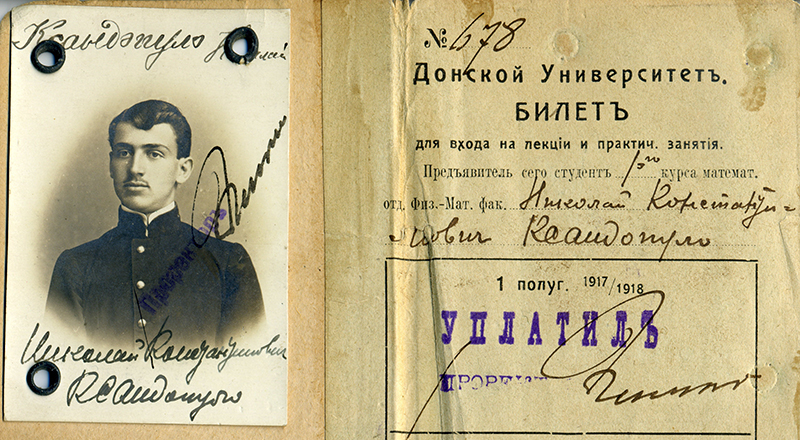 Ксандопуло Николай
Николай Константинович
Ксандопуло
Проректоръ
№ 678
Донской Университетъ.
БИЛЕТЪ
для входа на лекціи и практич. занятія.
Предъявитель сего студентъ 1го курса математ.
отд. Физ.-Мат. фак. Николай Константи-
нович Ксандопуло
1 полуг. 1917/1918
УПЛАТИЛЪ
ПРОРЕКТ